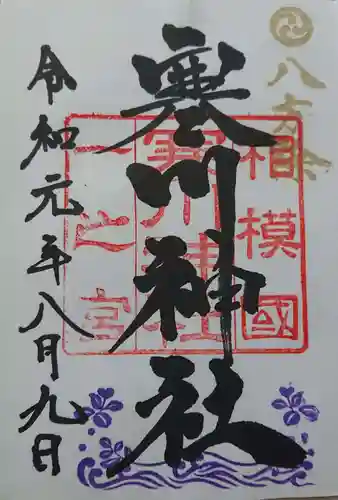 八方除
相模國
一之宮
寒川神社
寒川神社
令和元年八月九日